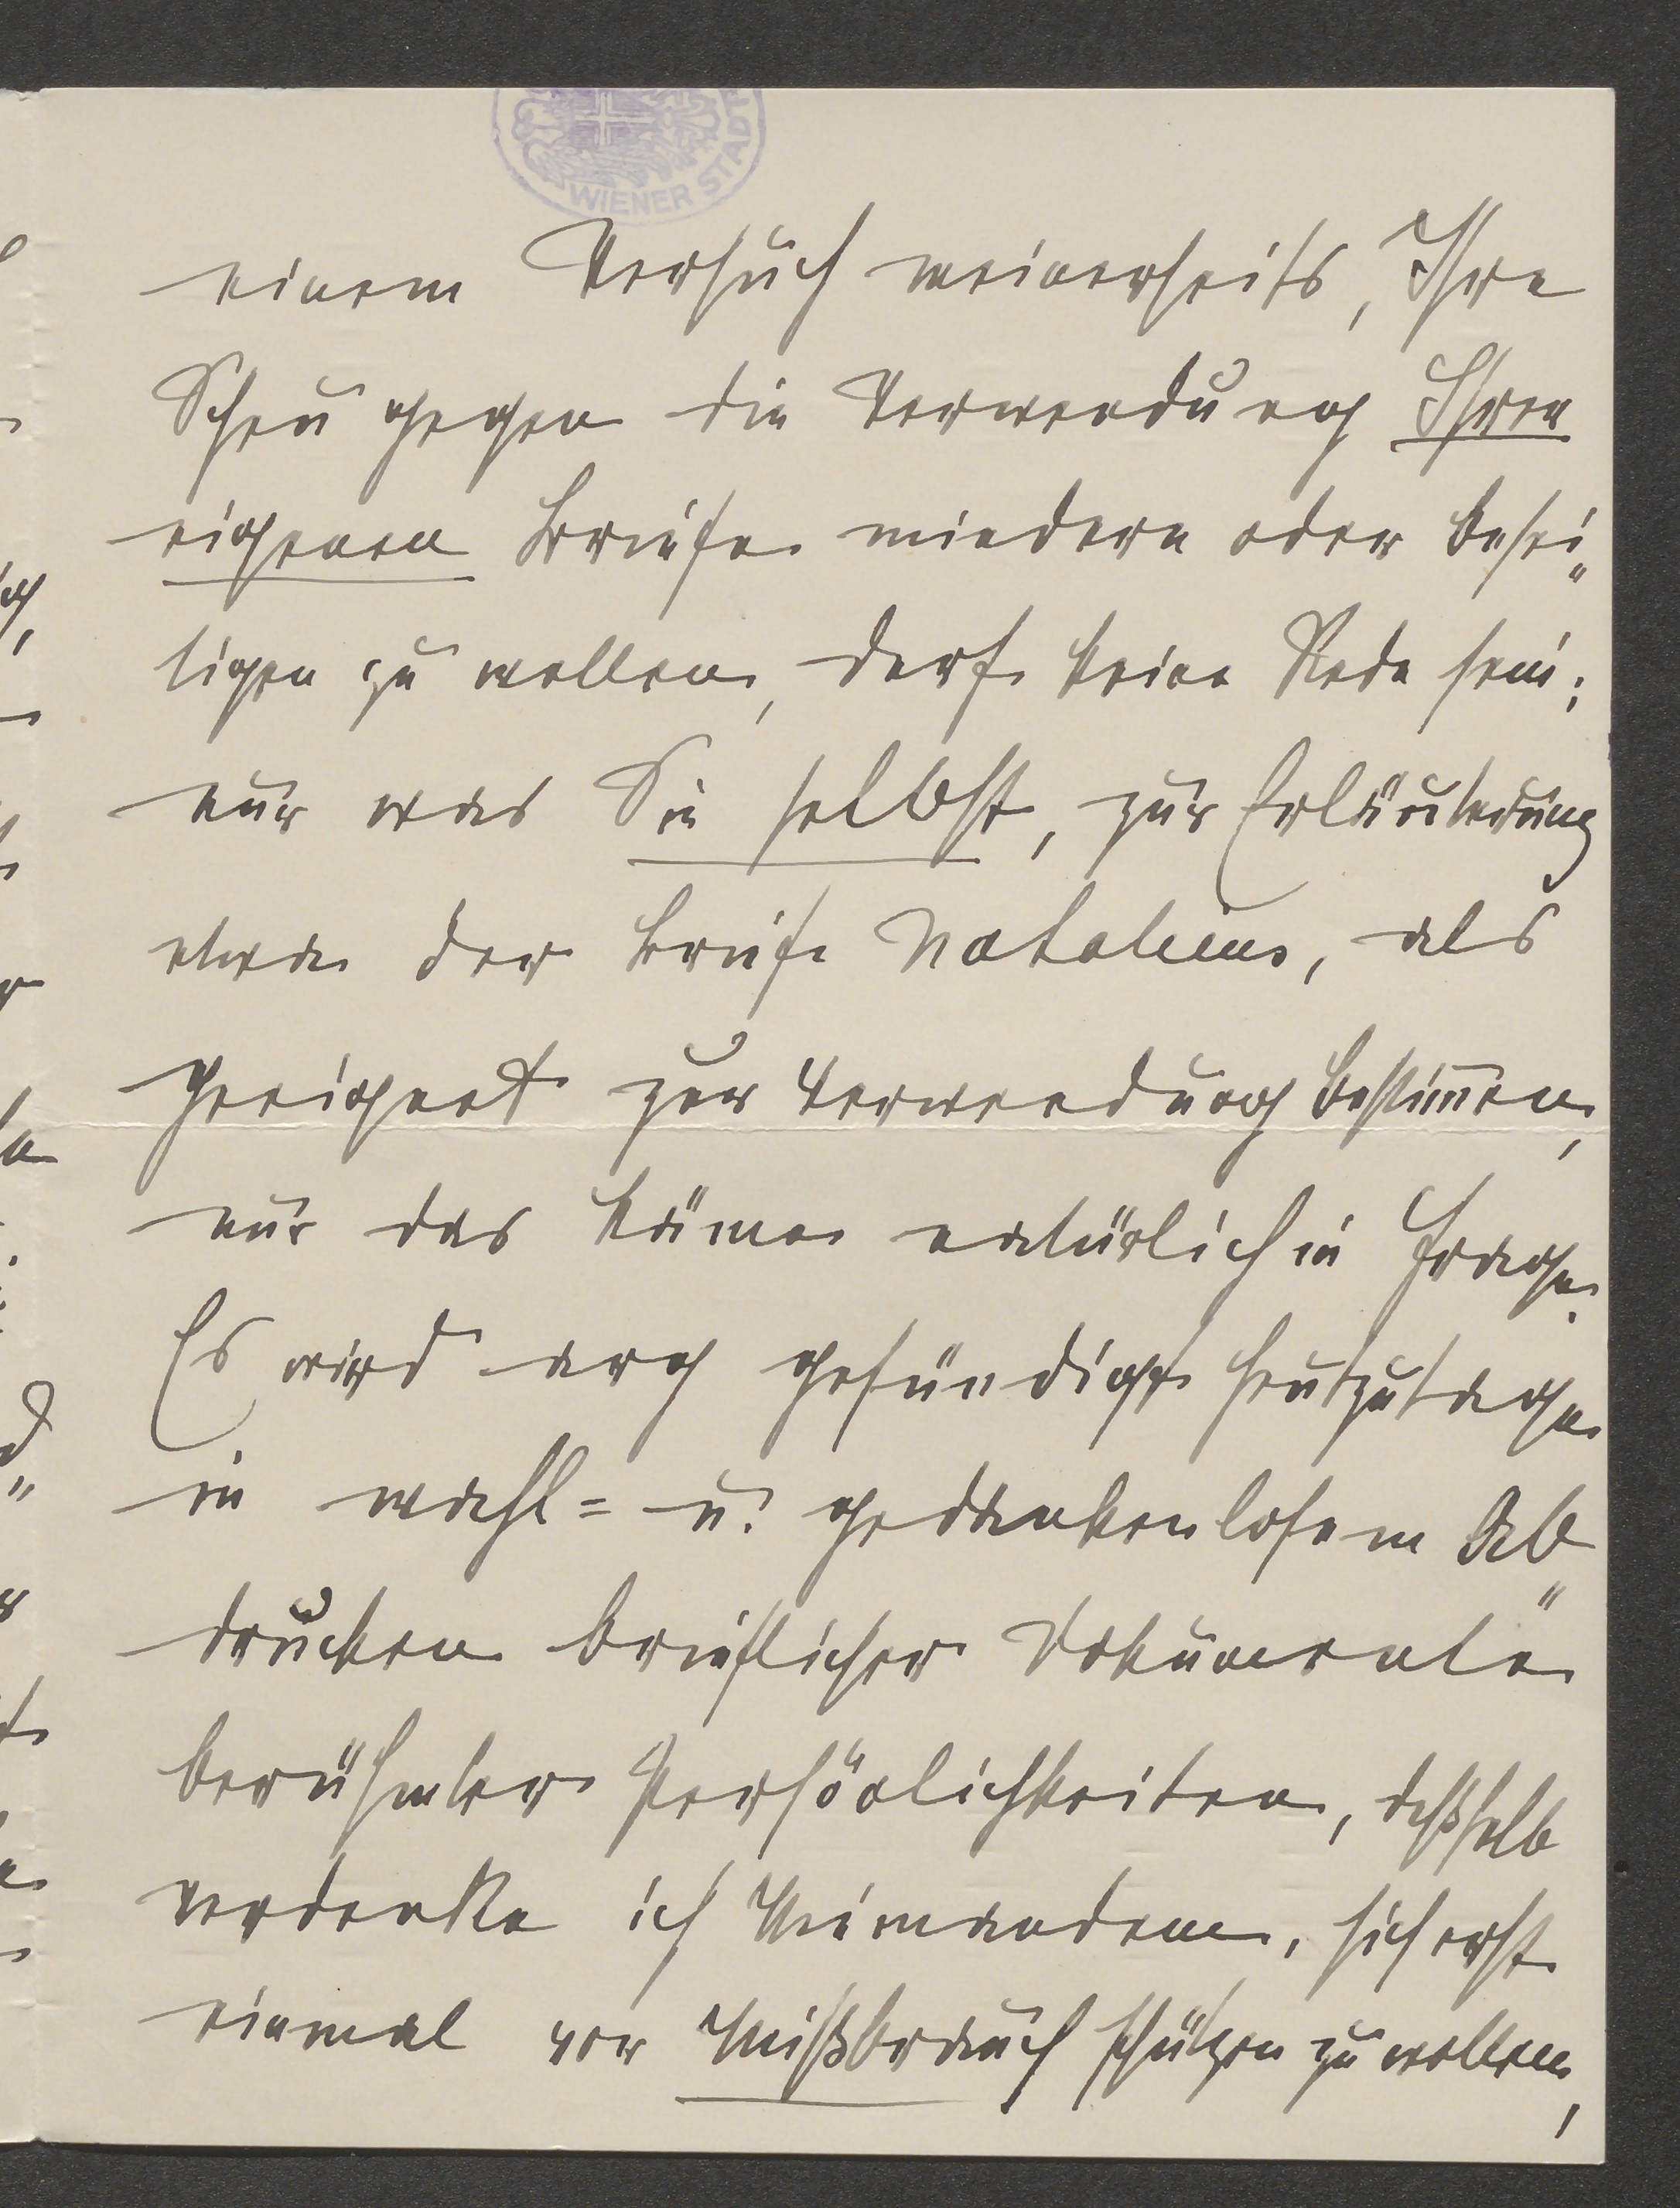 WIENER STADT
einem Versuch meinerseits, Ihre
Scheu gegen die Verwendung Ihrer
eigenen Briefe mindern oder besei„
tigen zu wollen, darf keine Rede sein;
nur was Sie selbst, zur Erläuterung
etwa der Briefe Nataliens, als
geeignet zur Verwendung bestim̅en,
nur das käme natürlich in Frage.
Es wird arg gesündigt heutzutage
in wahl= u. gedankenlosem Ab„
drucken brieflicher Dokumente
berühmter Persönlichkeiten, deßhalb
verdenke ich Niemandem, sich erst
einmal vor Mißbrauch schützen zu wollen,